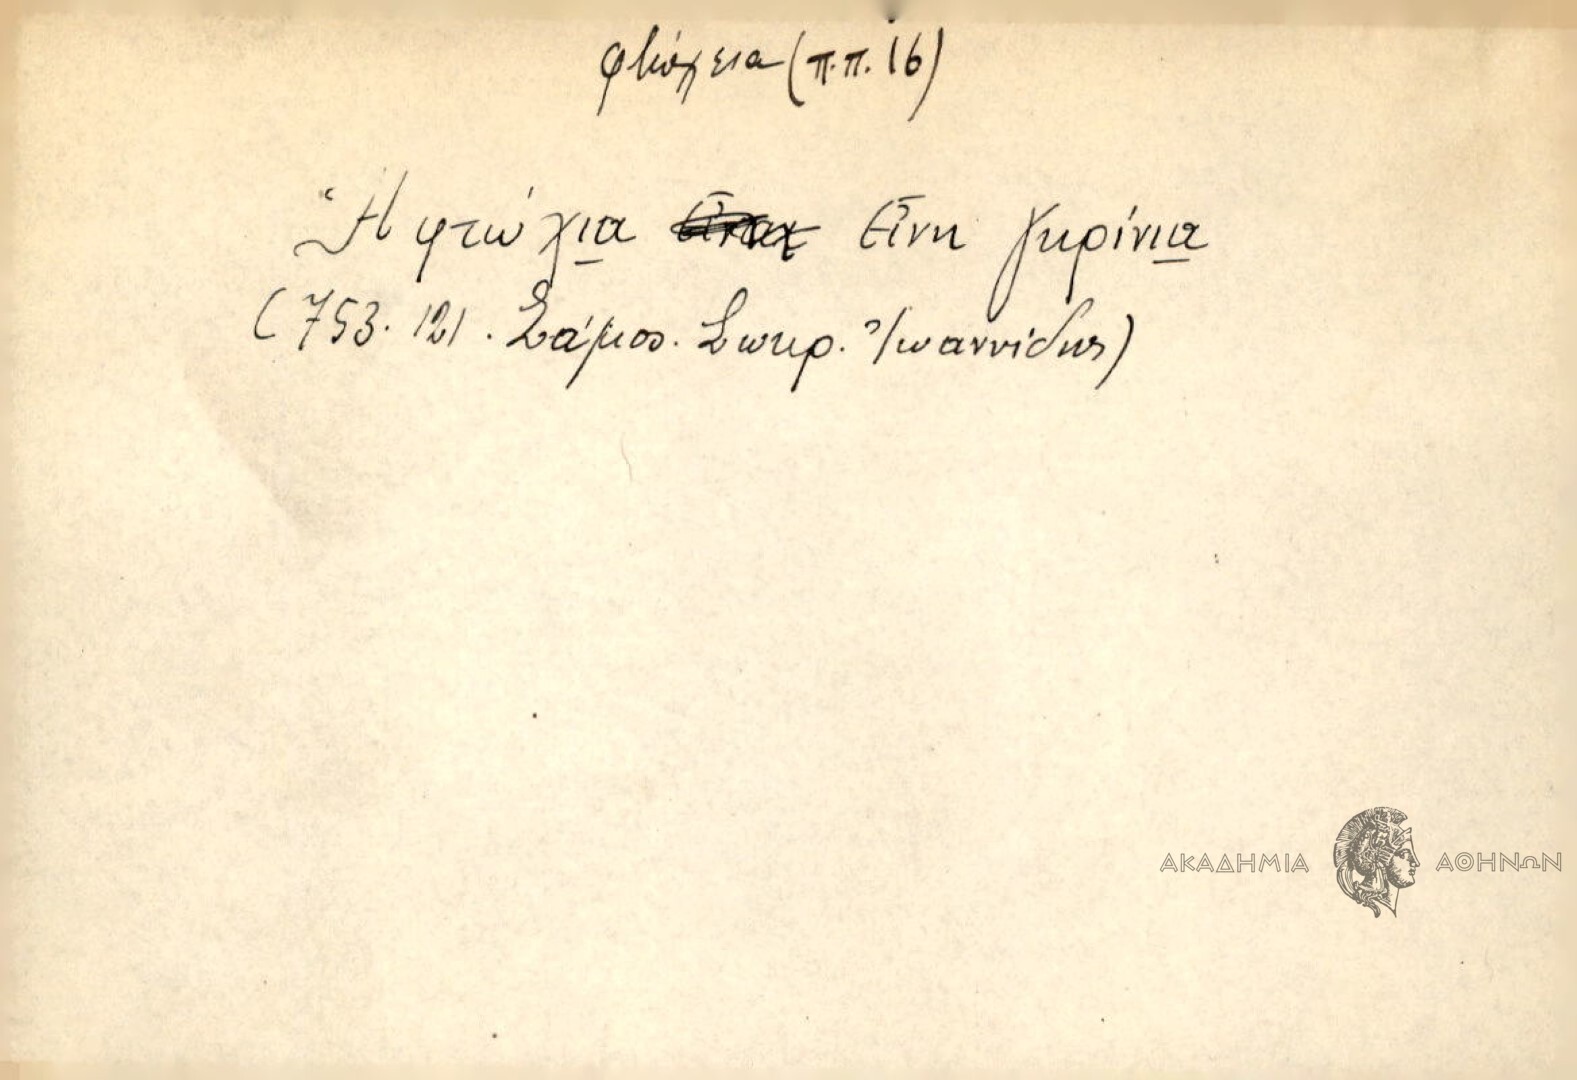 φτώχεια (π.π. 16)
Ἡ φτώχια εἶνη γκρίνια
(753. 121. Σάμος. Σωτηρ. Ἰωαννίδης)
ΑΚΑΔΗΜΙΑ ΑΘΗΝΩΝ